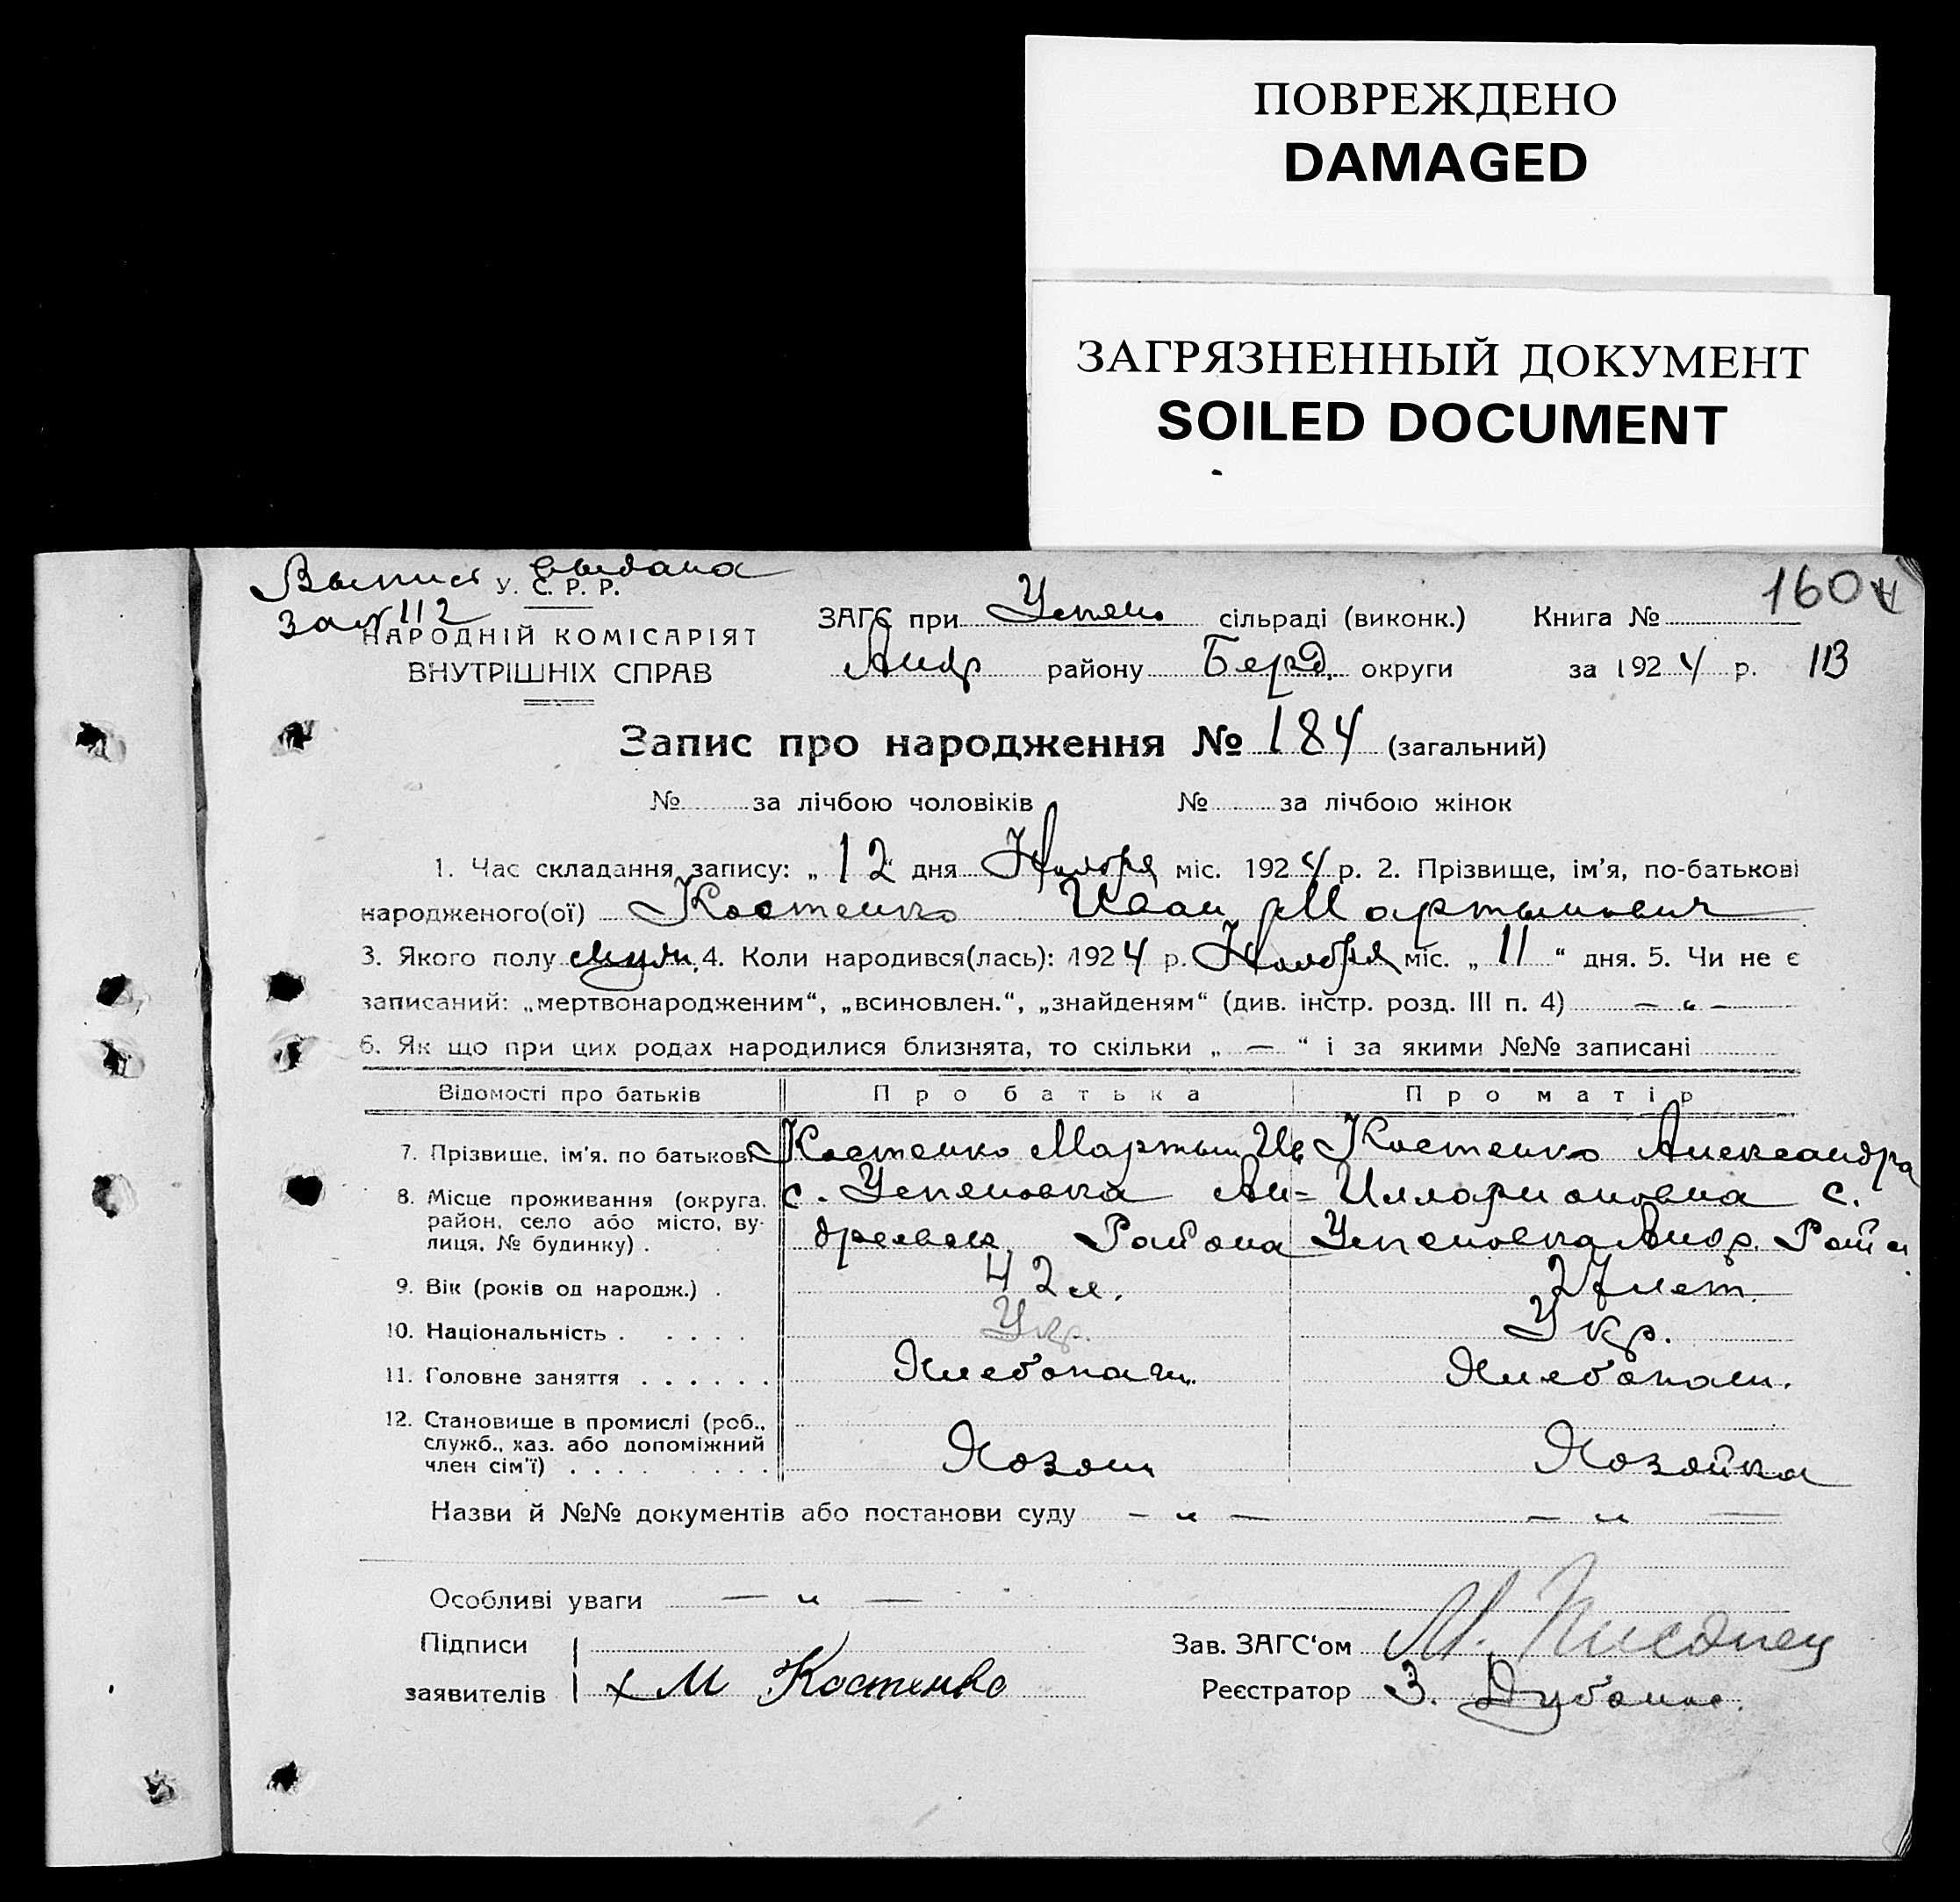 ПОВРЕЖДЕНО
DAMAGED
ЗАГРЯЗНЕННЫЙ ДОКУМЕНТ
SOILED DOCUMENT
Выпись выдана
за № 112
У. С. Р. Р.
НАРОДНІЙ КОМІСАРІЯТ
ВНУТРІШНІХ СПРАВ
160
ЗАГС при Успено сільраді (виконк.) Книга №
Андр району Берд. округи за 1924 р. 113
Запис про народження № 184 (загальний)
№ за лічбою чоловіків № за лічбою жінок
1. Час складання запису: „ 12 " дня Ноября міс. 1924 р. 2. Прізвище, ім'я, по-батькові
народженого(ої) Костенко Иван Мартынович
3. Якого полу муж. 4. Коли народився(лась): 1924 р. Ноября міс. „ 11 “ дня. 5. Чи не є
записаний: „мертвонародженим“, „всиновлен.“, „знайденям“ (див. інстр. розд. III п. 4) — „ —
6. Як що при цих родах народилися близнята, то скільки „ — “ і за якими №№ записані
Відомості про батьків Про батька Про матір
7. Прізвище, ім'я, по батькові Костенко Мартын Ив Костенко Александра
8. Місце проживання (округа, с. Успеновка Ан= Илларионовна с.
район, село або місто, ву-
лиця, № будинку) . дреевск. Района Успеновка Андр. Рай
9. Вік (років од народж.) . 42 л. 27 лет.
10. Національність . . . . . Укр. Укр.
11. Головне заняття . . . . . . Хлебопаш. Хлебопаш.
12. Становище в промислі (роб.,
служб., хаз. або допоміжний
член сім'ї) . . . . Хозяин Хозяйка
Назви й №№ документів або постанови суду — „ — — „ —
Особливі уваги — „ —
Підписи Зав. ЗАГС‘ом М.
заявителів х М Костенко Реєстратор З.